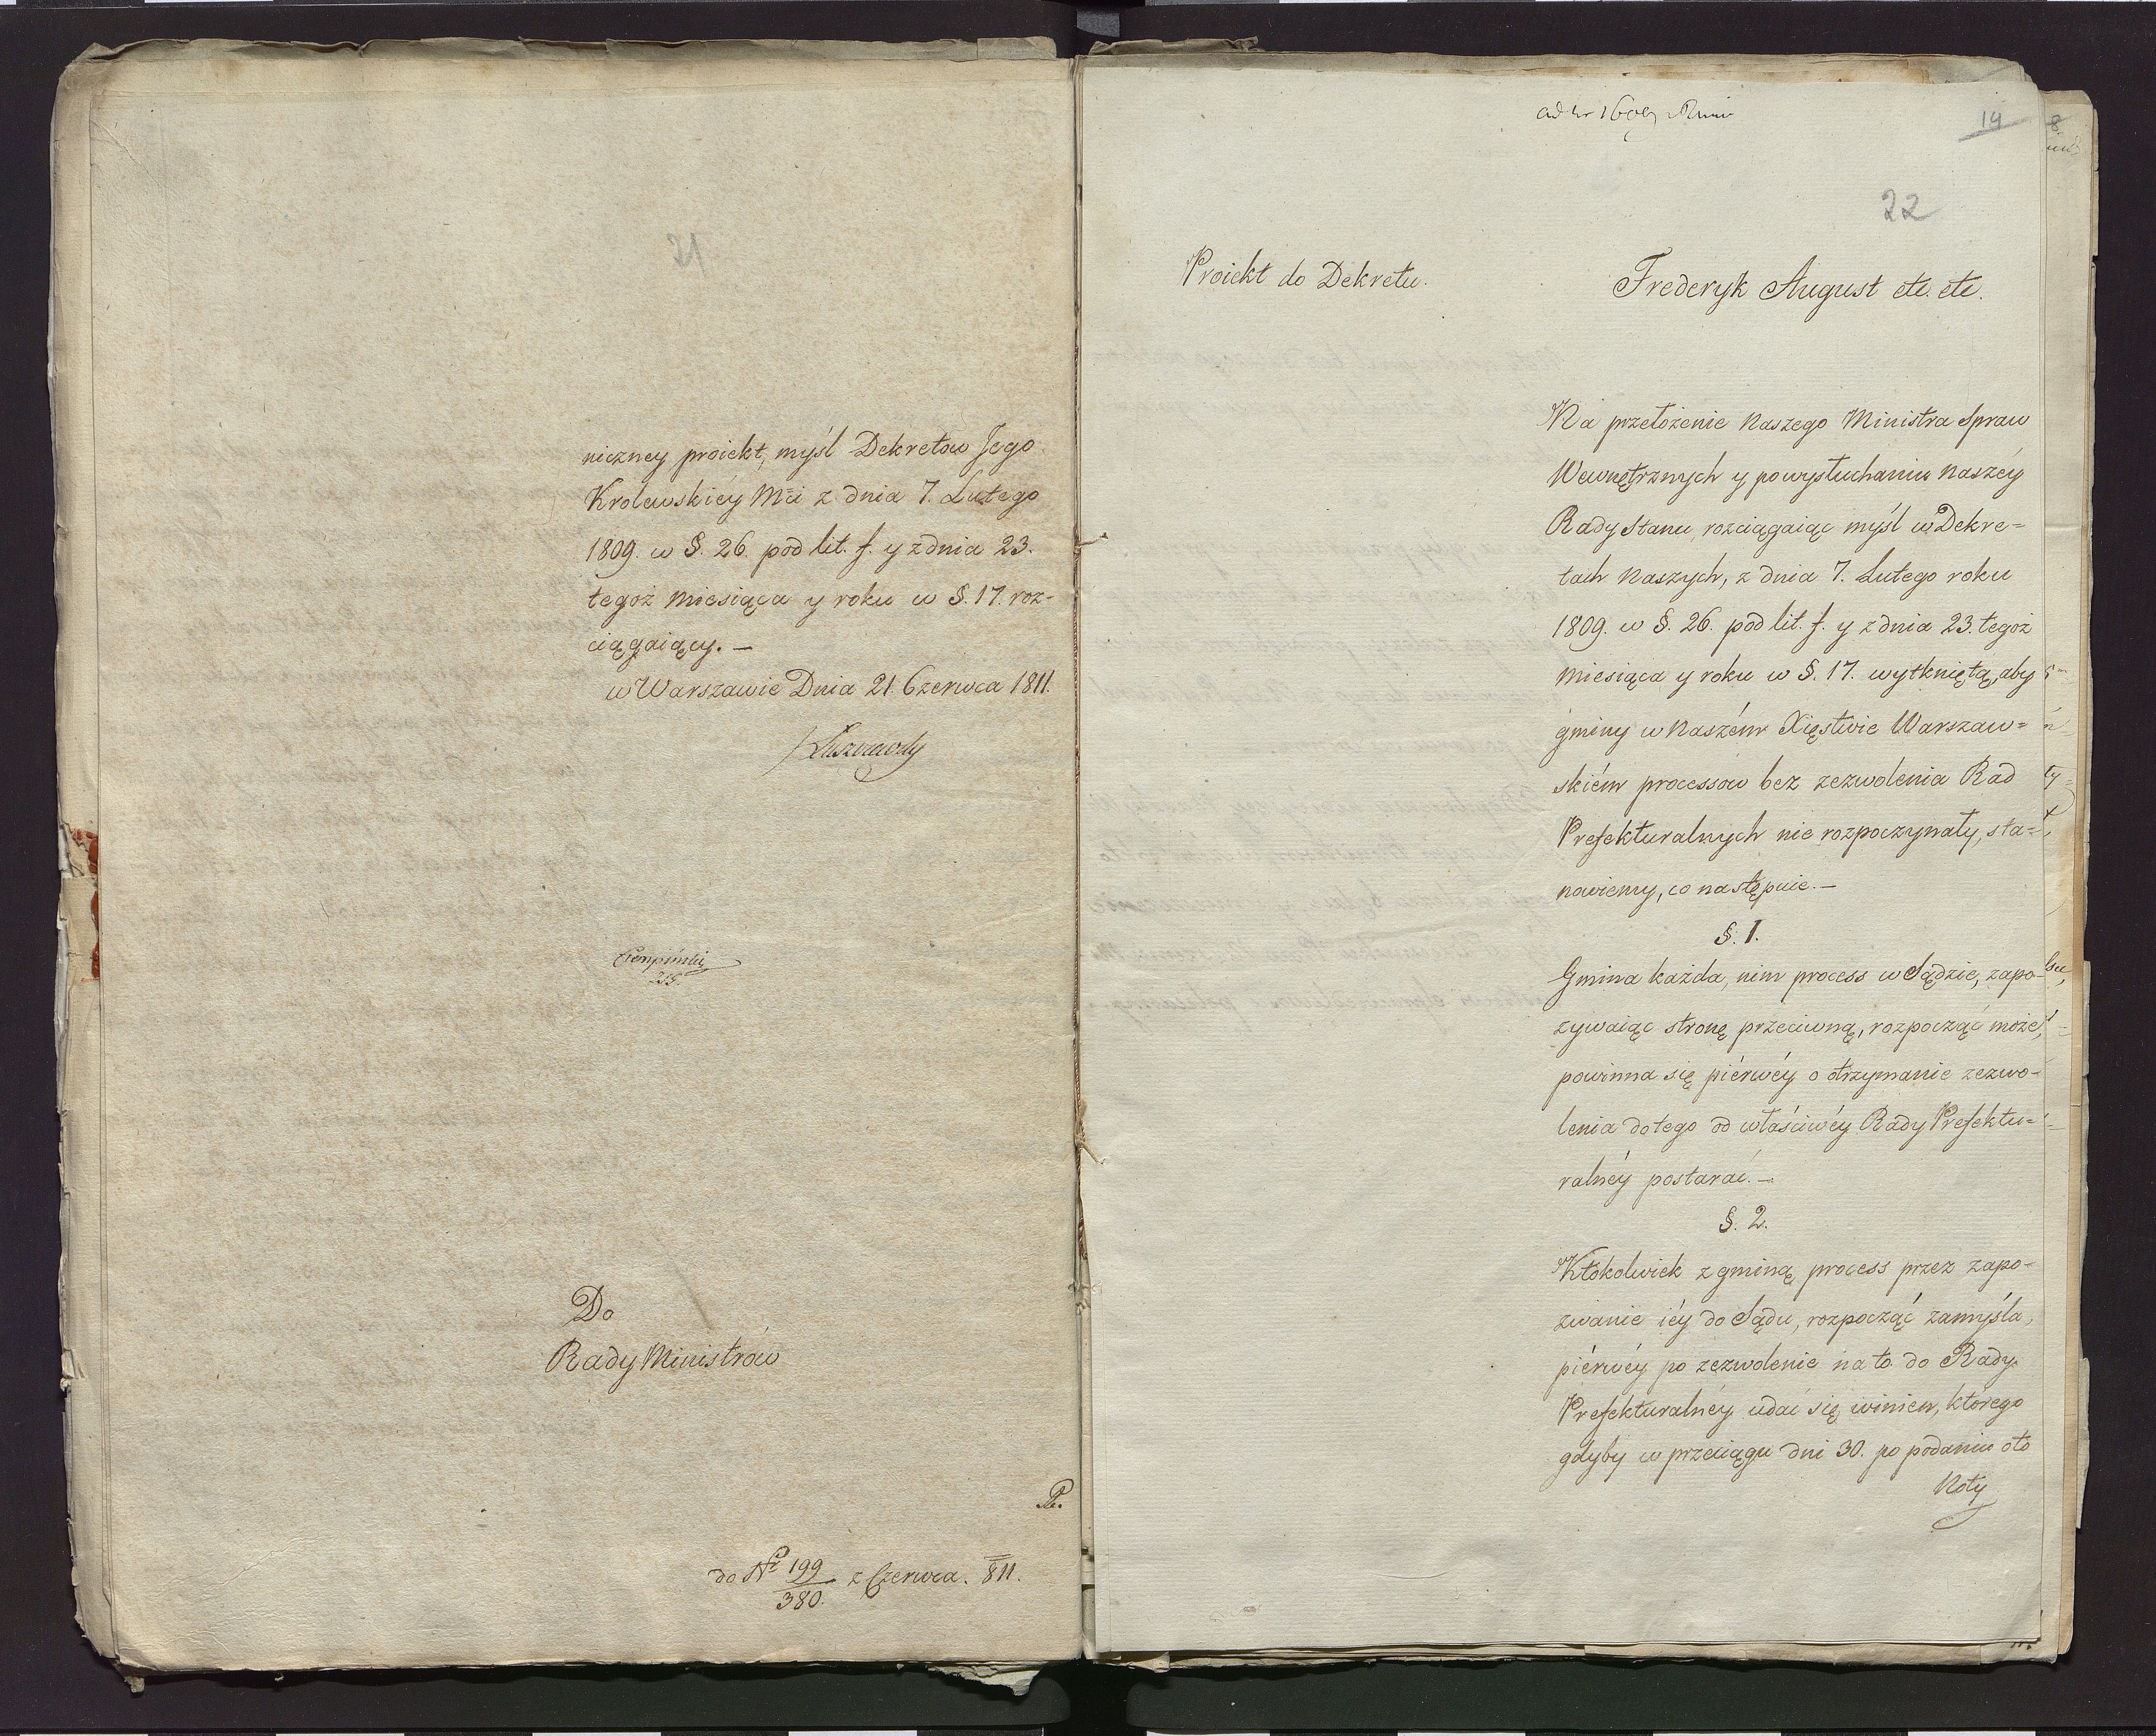 21
niczney proiekt, myśl Dekretow Jego
Krolewskiéy Mci z dnia 7. Lutego
1809. w §. 26. pod lit. f. y z dnia 23.
tegoż miesiąca y roku w §. 17. roz-
ciągaiący. —
w Warszawie Dnia 21 Czerwca 1811.
Do
Rady Ministrów
do Nr 199/380. z Czerwca. 811.
14
22
Proiekt do Dekretu.
Frederyk August etc. etc.
Na przełożenie Naszego Ministra Spraw
Wewnętrznych y po wysłuchaniu Naszéy
Rady Stanu, rozciągaiąc myśl w Dekre=
tach Naszych, z dnia 7. Lutego roku
1809. w §. 26. pod lit. f. y z dnia 23. tegoż
miesiąca y roku w §. 17. wytkniętą, aby
gminy w Naszém Xięstwie Warszaw=
skiém processow bez zezwolenia Rad
Prefekturalnych nie rozpoczynały, sta=
nowiemy, co następuie. —
§. 1.
Gmina każda, nim process w Sądzie, zapo-
zywaiąc stronę przeciwną, rozpocząć może,
powinna się piérwéy o otrzymanie zezwo-
lenia do tego od właściwéy Rady Prefektu=
ralnéy postarać. —
§. 2.
Ktokolwiek z gminą process przez zapo-
zwanie iéy do Sądu, rozpocząć zamyśla,
piérwéy po zezwolenie na to do Rady
Prefekturalnéy udać się winien, którego
gdyby w przeciągu dni 30. po podaniu o to
Noty